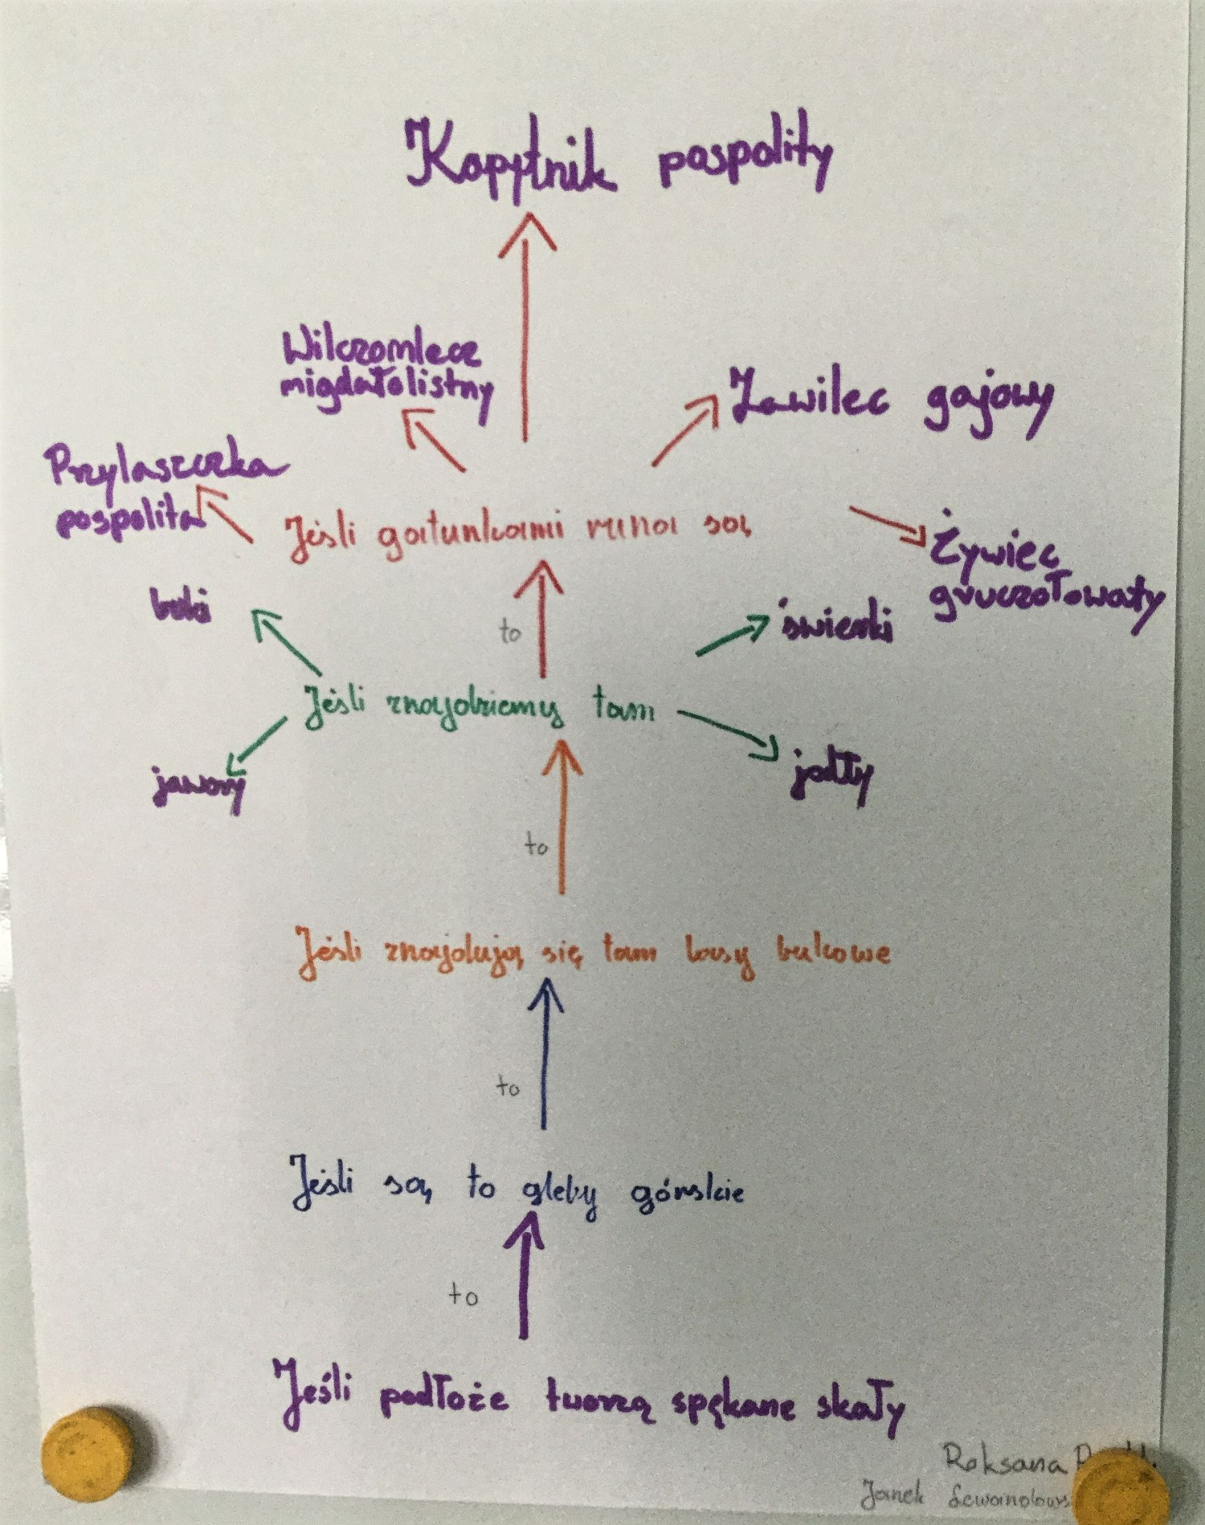 Kopytnik pospolity
Wilczomlecz
migdałolistny
Zawilec gajowy
Przylaszczka
pospolita
Jeśli gatunkami runa są
Żywiec
gruczołowaty
buki
to
świerki
Jeśli znajdziemy tam
jawory
jodły
to
Jeśli znajdują się tam lasy bukowe
to
Jeśli są to gleby górskie
to
Jeśli podłoże tworzą spękane skały
Roksana
Janek